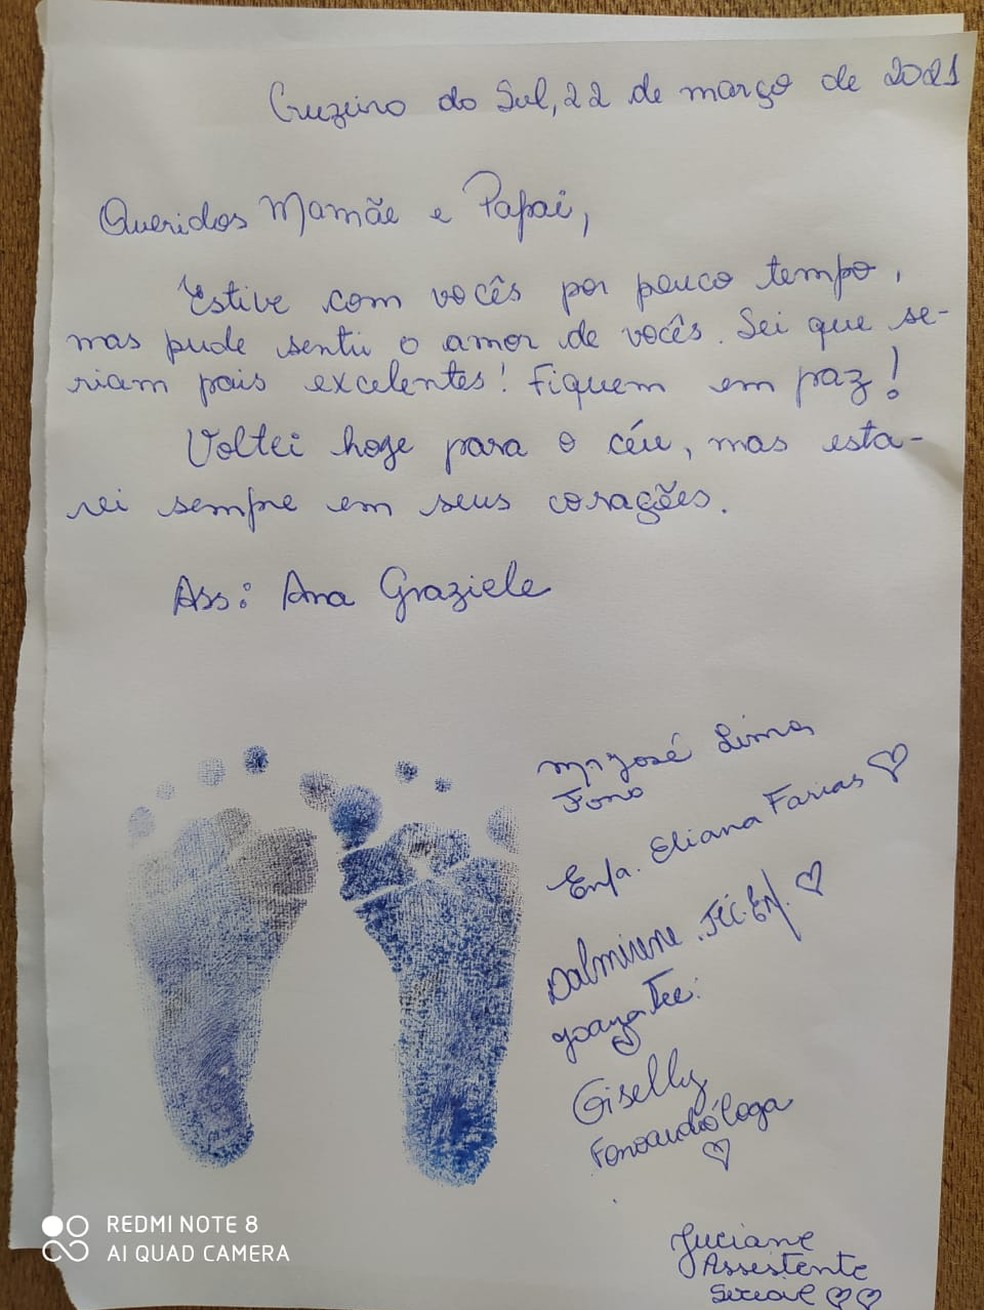 Cruzeiro do Sul, 22 de março de 2021
Queridos Mamãe e Papai,
Estive com vocês por pouco tempo,
mas pude sentir o amor de vocês. Sei que se-
riam pais excelentes! Fiquem em paz!
Voltei hoje para o céu, mas esta-
rei sempre em seus corações.
Ass: Ana Graziele
Mª José Lima
Fono
Enfa. Eliana Farias ♡
Dalmirene .Téc.En/. ♡
Tec.
Giselly
Fonoaudióloga
♡
Juciane
Assistente
Social ♡♡
REDMI NOTE 8
AI QUAD CAMERA